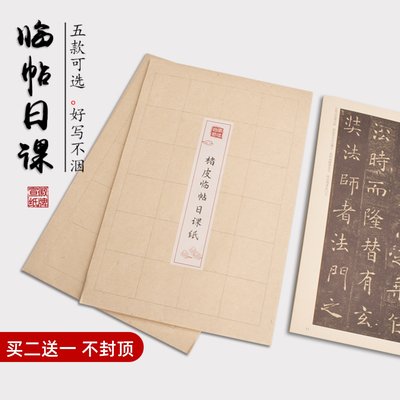 临帖日课
五款可选
好写不洇
楮皮临帖日课纸
法時而隆替有玄
奘法師者法門之
买二送一 不封顶